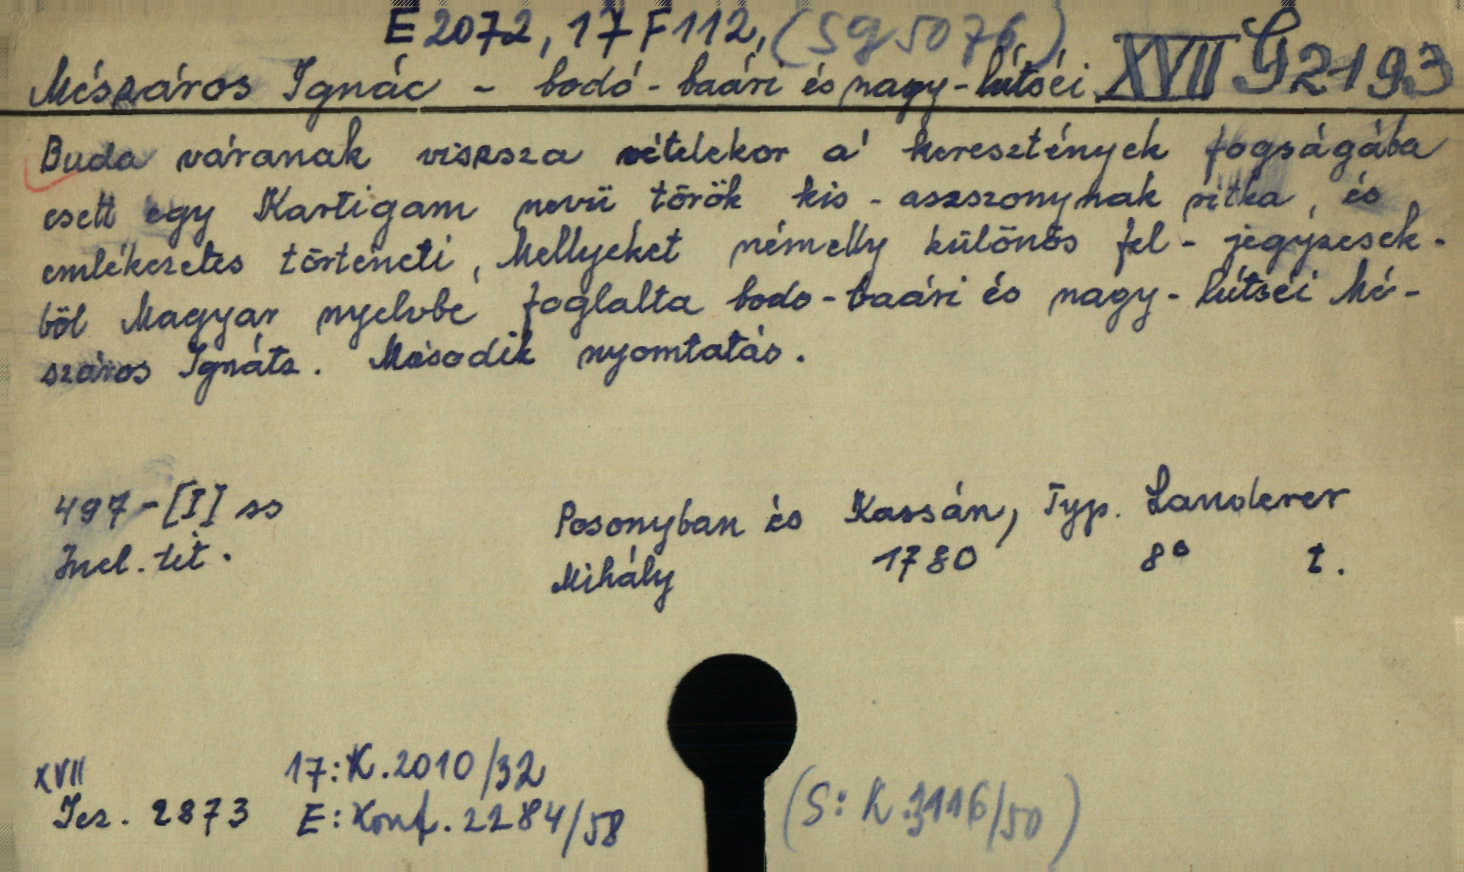 E 2072, 17 F 112, (Sg 5076)
Mészáros Ignác - bodó-baári és nagy-lútséi XVII G 2193
Buda váranak viszsza vételekor a' keresztények fogságába
esett egy Kartigam nevü török kis-aszszonynak ritka, és
emlékezetes történeti, Mellyeket némelly különös fel-jegyzesek-
böl Magyar nyelvbe foglalta bodo-baári és nagy-lútséi Mé-
száros Ignátz. Második nyomtatás.
497-[I] ss
Incl. tit.
Posonyban és Kassán, Typ. Landerer
Mihály 1780 8° t.
XVII
Jes. 2873
17: K. 2010/32
E: Konf. 2284/58
(S: K. 3116/50)